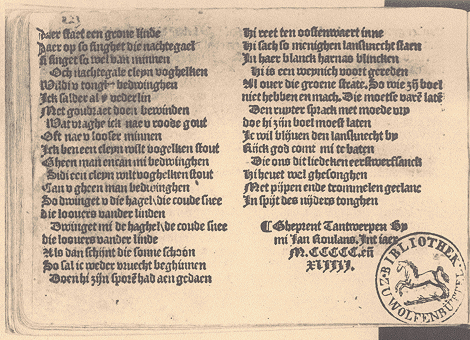 Daer staet een grone linde
Daer op so singhet die nachtegael
si singet so wel van minnen
Och nachtegale cleyn voghelken
Wildi v tonghe bedwinghen
Ick sal der al v vederlin
Met goudraet doen bewinden
Wat vraghe ick nae v roode gout
Oft nae v looser minnen
Ick ben een cleyn wilt vogelken stout
Gheen man en can mi bedwinghen
Sidi een cleyn wilt voghelken stout
Can v gheen man bedwinghen
So dwinget v die haghel die coude snee
die loovers vander linden
Dwinget mi de haghel de coude snee
die loovers vander linde
Als dan schijnt die sonne schoon
So sal ic weder vruecht beghinnen
Doen hi zijn sporē had aen gedaen
Hi reet ten oosten waert inne
Hi sach so menighen lansknecht staen
In haer blanck harnas blincken
Hi is een weynich voort gereden
Al over die groene strate. So wie zij boel
niet hebben en mach. Die moetse varē latē
Den ruyter sprack met moede vry
doe hi zijn boel moest laten
Ic wil blijven den lansknecht by
Rijck god comt mi te baten
Die ons dit liedeken eerstwerf sanck
Hi heuet wel ghesonghen
Met pijpen ende trommelen geclanc
In spijt des nijders tonghen
¶ Gheprent Tantwerpen By
mi Jan Roulans. Int iaer
M.CCCCC.eñ
XLIIII.
BIBLIOTHEK
ZU WOLFENBÜTTEL